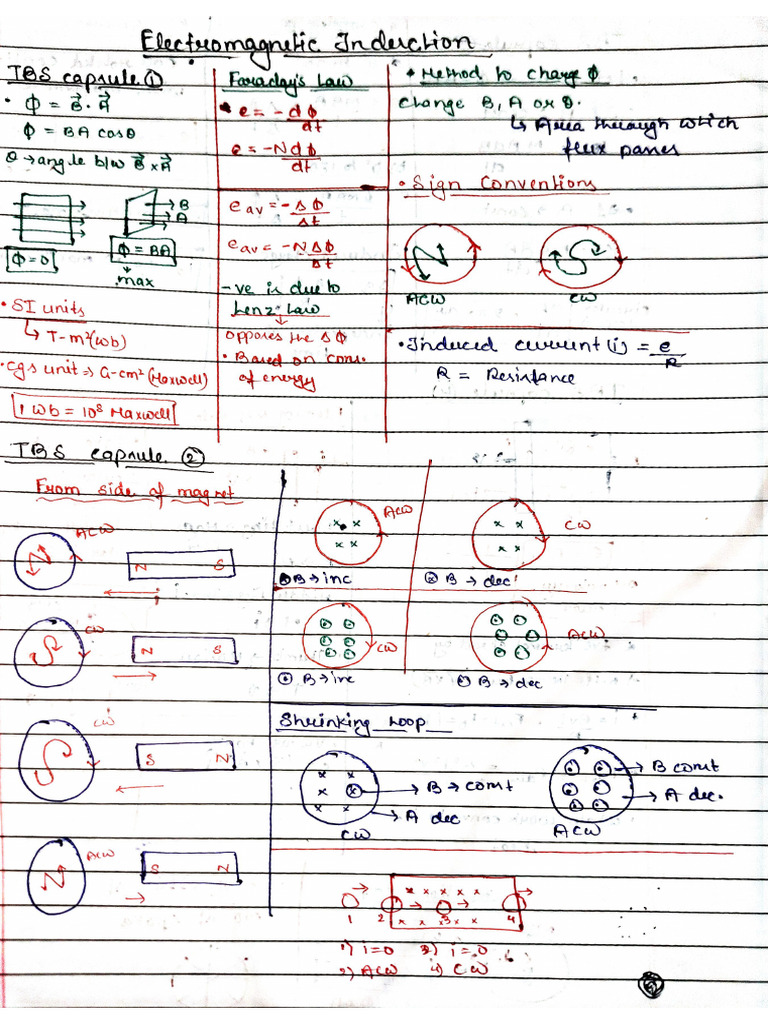 Electromagnetic Induction
TBS capsule ①
• ϕ = B⃗ · A⃗
ϕ = BA cosθ
θ → angle b/w B⃗ × A⃗
→ B
→ A
ϕ = 0
ϕ = BA
max
• SI units
↳ T-m²(wb)
• Cgs unit ⇒ G-cm² (Maxwell)
1 wb = 10⁸ Maxwell
Faraday's Law
• e = -dϕ/dt
e = -N dϕ/dt
e av = -Δϕ/Δt
e av = -NΔϕ/Δt
-ve is due to
Lenz Law
opposes the Δϕ
• Based on cons.
of energy
• Method to change ϕ
Change B, A or θ.
↳ Area through which
flux passes
• Sign Conventions
N
S
ACW
CW
• Induced current (i) = e/R
R = Resistance
TBS capsule ②
From side of magnet
ACW
N
N S
CW
S
N S
CW
S
S N
ACW
N
S N
ACW
x x
x x
① B → inc
CW
x x
x x
② B → dec
CW
① B → inc
ACW
② B → dec
Shrinking Loop
x x
x x
x x
→ B → const
→ A dec
CW
→ B const
→ A dec.
ACW
x x x x x
x x x x
1 2 3 4
1) i=0 3) i=0
2) ACW 4) CW